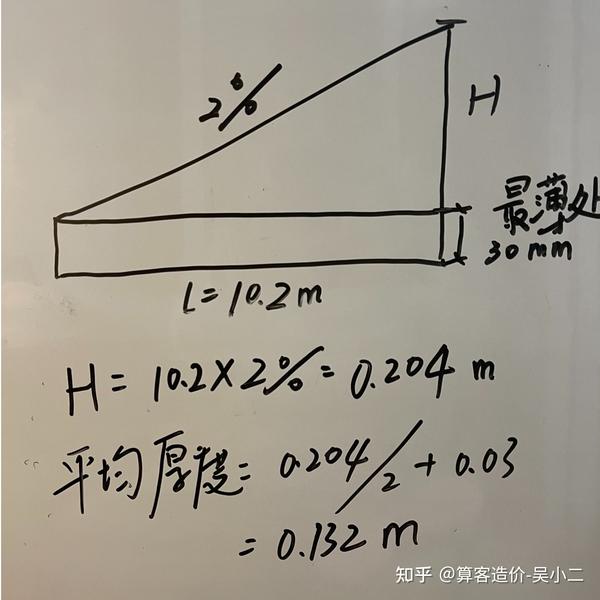 2%
H
最薄处
30mm
L=10.2m
H=10.2×2%=0.204 m
平均厚度=0.204/2+0.03
=0.132 m
知乎 @算客造价-吴小二